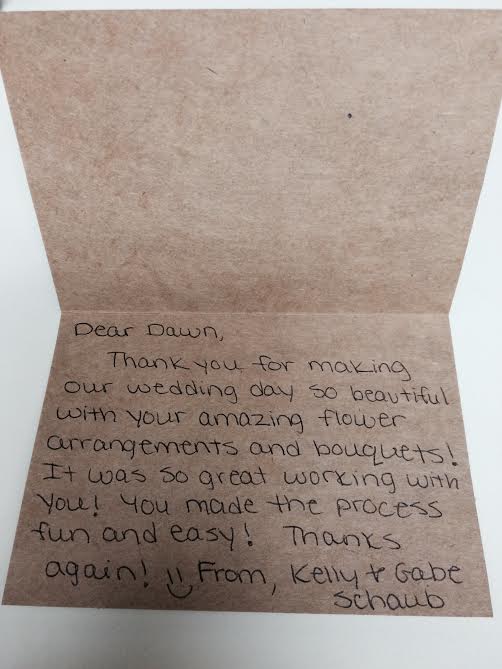 Dear Dawn,
Thank you for making
our wedding day so beautiful
with your amazing flower
arrangements and bouquets!
It was so great working with
you! You made the process
fun and easy! Thanks
again! :) From, Kelly & Gabe
Schaub